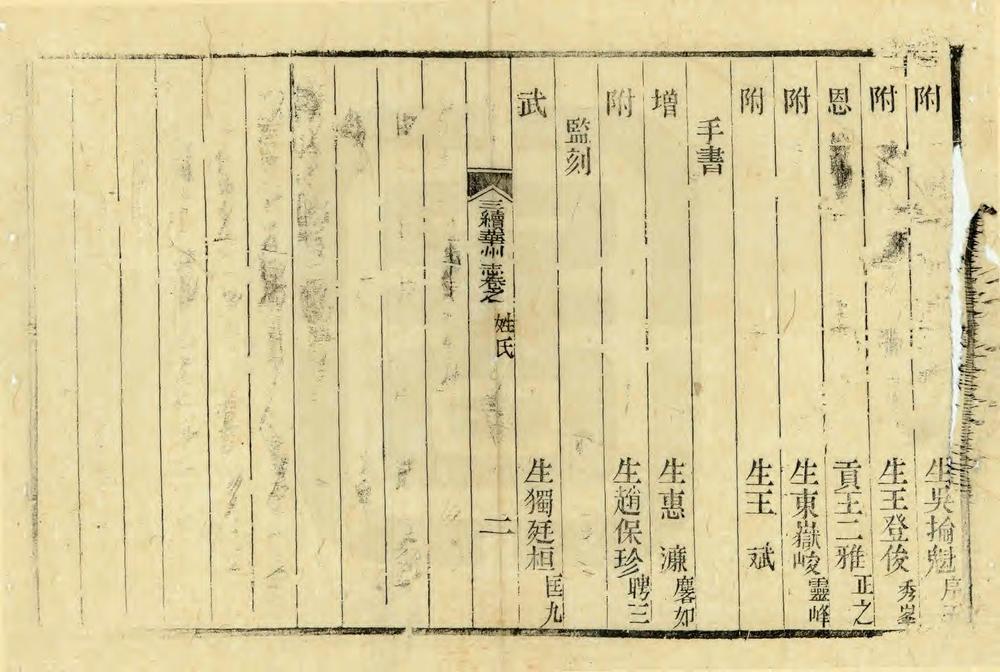 附生吳掄魁序
附生王登俊秀峯
恩貢王二雅正之
附生東嶽峻靈峰
附生王斌
手書
增生惠濂馨如
附生趙保珍聘三
監刻
武生獨廷桓匡九
三續華州志卷之 姓氏 二